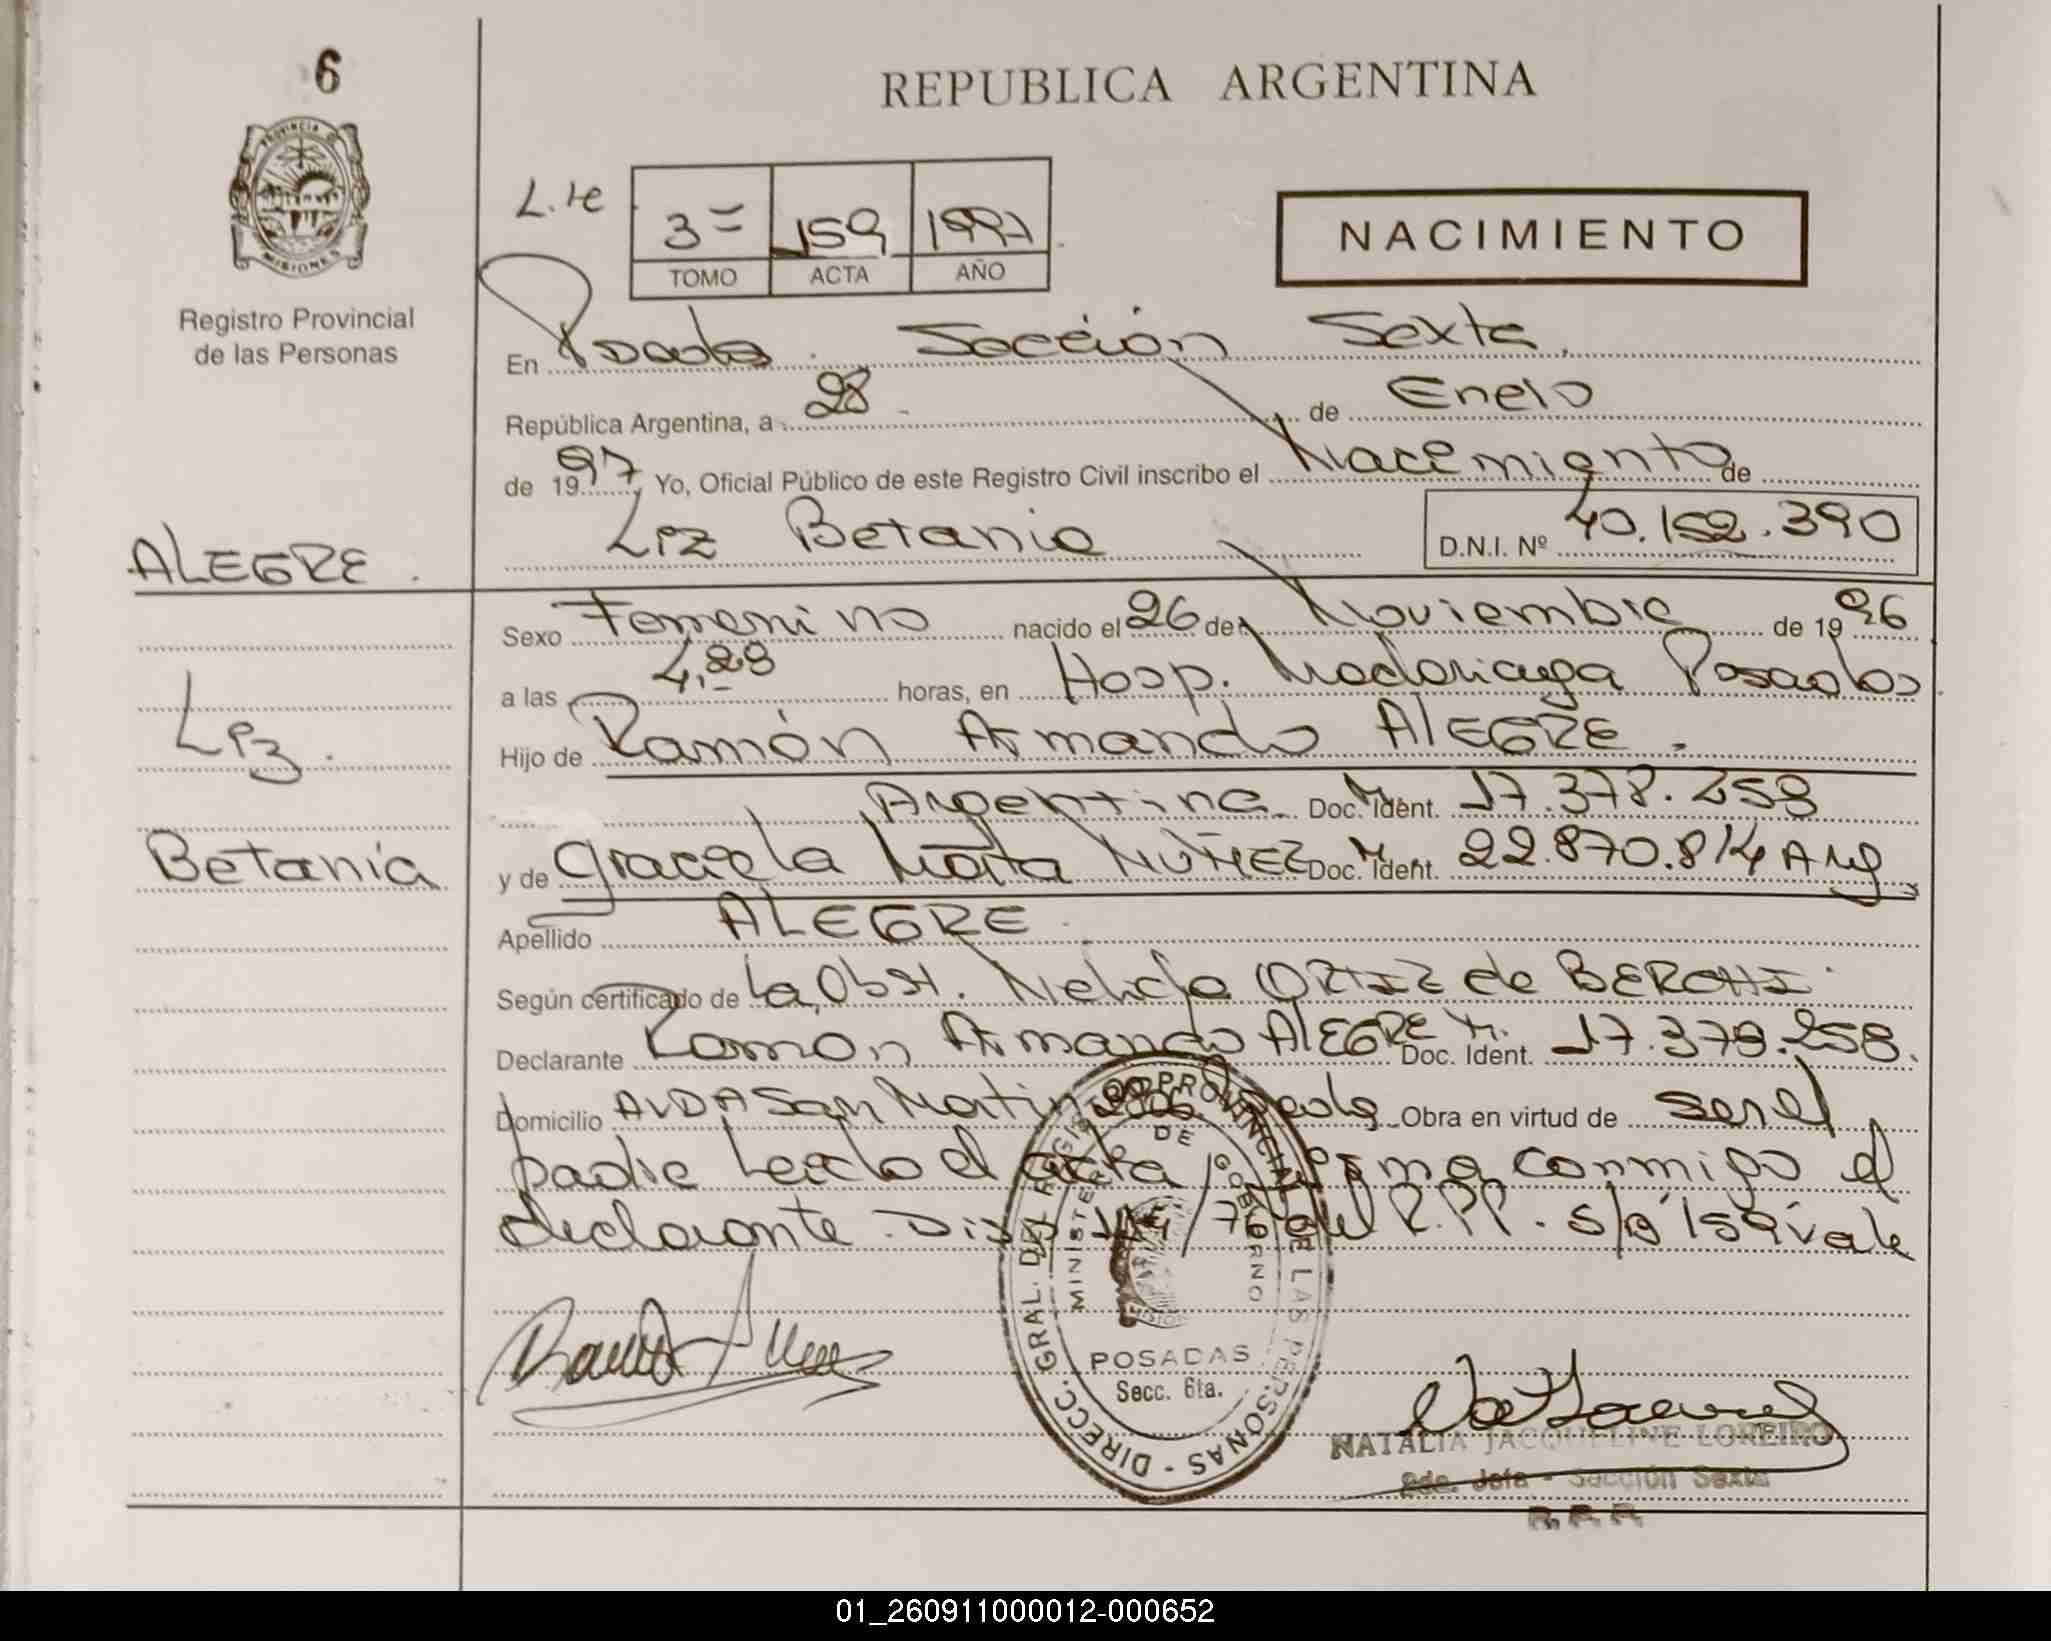 6
REPUBLICA ARGENTINA
PROVINCIA DE
MISIONES
Registro Provincial
de las Personas
L. 1e
3= 159 1997
TOMO ACTA AÑO
NACIMIENTO
En Posadas. Sección Sexta.
República Argentina, a 28 de Enero
de 1997 Yo, Oficial Público de este Registro Civil inscribo el Nacimiento de
Liz Betania D.N.I. Nº 40.152.390
ALEGRE.
Liz.
Betania
Sexo Femenino nacido el 26 de Noviembre de 1996
a las 4,28 horas, en Hosp. Madariaga Posadas
Hijo de Ramón Armando AlEGRE.
Argentina Doc. Ident. 17.378.258
y de Graciela Marta NUÑEZ Doc. Ident. 22.870.814 Arg
Apellido ALEGRE.
Según certificado de la Obst. Nelida ORTIZ de
Declarante Ramon Armando AlEGRE Doc. Ident. 17.378.258.
Domicilio AVDA San Martin Obra en virtud de ser el
padre Leido el acta firma conmigo el
declarante. Disp 114/76 del R.P.P. s/b 159 vale
DIRECC. GRAL. DEL REGISTRO PROVINCIAL DE LAS PERSONAS
MINISTERIO DE GOBIERNO
POSADAS
Secc. 6ta.
NATALIA JACQUELINE LOREIRO
2da. Jefa - Sección Sexta
R. P. P.
01_260911000012-000652